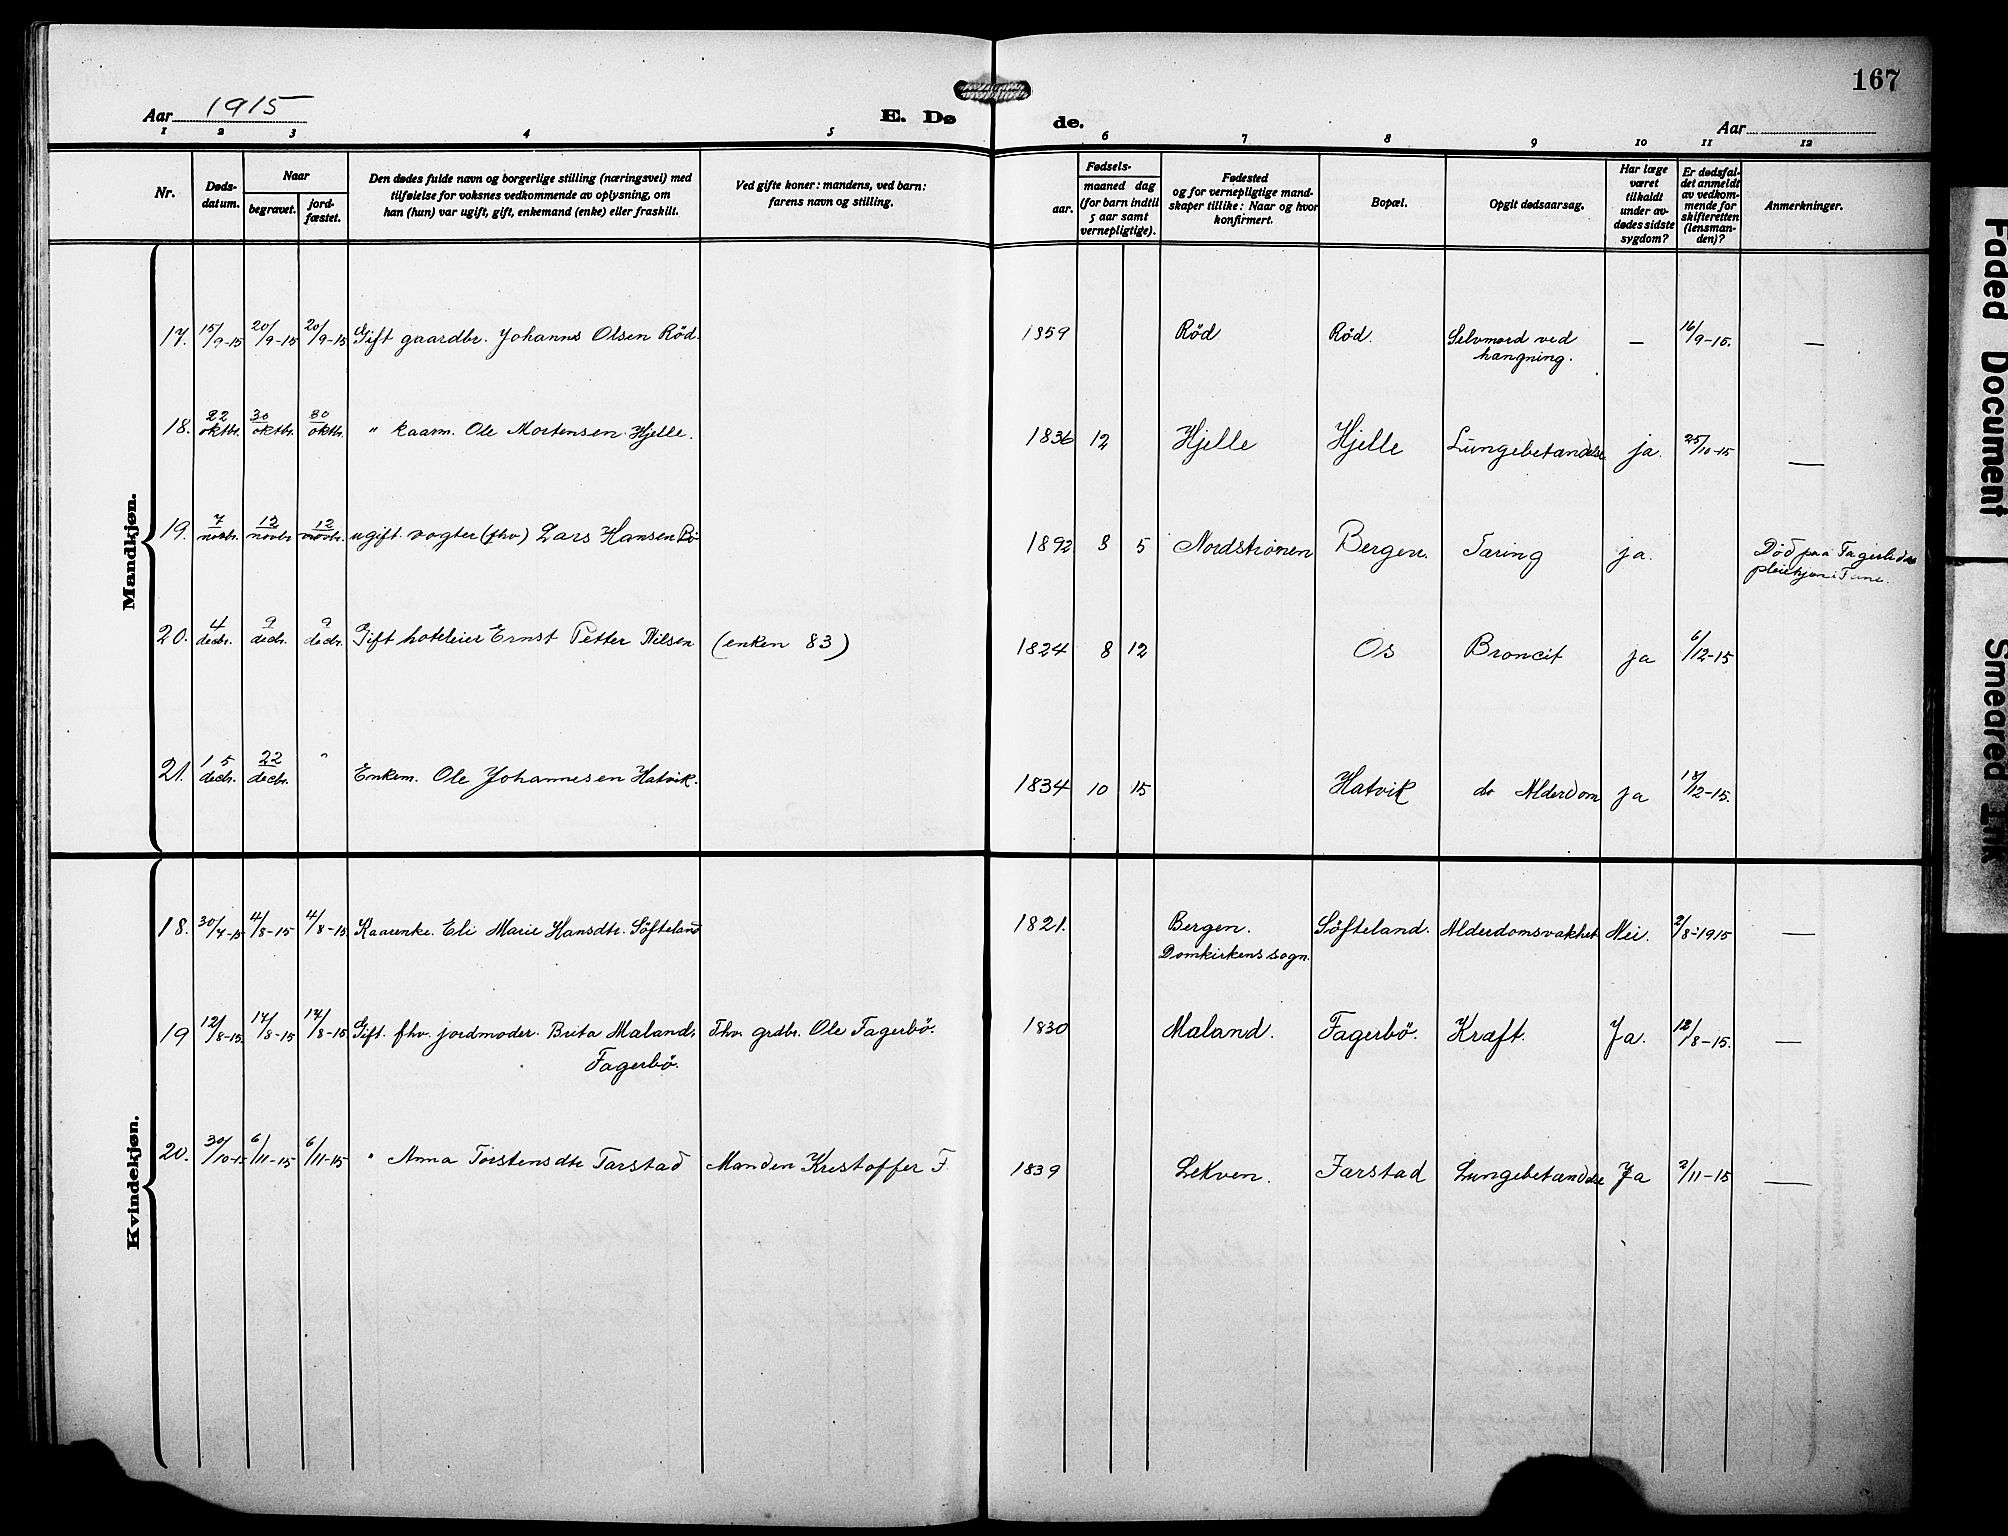 167
Aar 1915
E. Dø de.
Aar
1 2 3 4 5 6 7 8 9 10 11 12
Nr.
Døds-
datum.
Naar
begravet.
jord-
fæstet.
Den dødes fulde navn og borgerlige stilling (næringsvei) med
tilføielse for voksnes vedkommende av oplysning, om
han (hun) var ugift, gift, enkemand (enke) eller fraskilt.
Ved gifte koner: mandens, ved barn:
farens navn og stilling.
Fødsels-
aar.
maaned dag
(for barn indtil
5 aar samt
vernepligtige).
Fødested
og for vernepligtige mand-
skaper tillike: Naar og hvor
konfirmert.
Bopæl.
Opgit dødsaarsag.
Har læge
været
tilkaldt
under av-
dødes sidste
sygdom?
Er dødsfal-
det anmeldt
av vedkom-
mende for
skifteretten
(lensman-
den)?
Anmerkninger.
Mandkjøn.
17. 15/9-15 20/9-15 20/9-15 Gift gaardbr. Johannes Olsen Rød. 1859 Rød Rød. Selvmord ved 16/9-15. —
hængning.
18. 22 oktbr. 30 oktbr. 30 oktbr. " kaarm. Ole Mortensen Hjelle. 1836 12 Hjelle Hjelle Lungebetændelse ja. 25/10-15 —
19. 7 novbr. 12 novbr. 12 novbr. ugift vogter (fhv) Lars Hansen 1892 8 5 Nordstrønen Bergen. Tæring ja. Død paa
pleiehjem i
20. 4 decbr. 9 decbr. 9 decbr. Gift hoteleier Ernst Petter Nilsen (enken 83) 1824 8 12 Os Broncit ja 6/12-15
21. 15 decbr. 22 decbr. " Enkem. Ole Johannesen Hatvik. 1834 10 15 Hatvik do Alderdom ja 18/12-15.
Kvindekjøn.
18. 30/7-15 4/8-15 4/8-15 Kaarenke. Eli Marie Hansdtr. Söfteland 1821. Bergen. Söfteland. Alderdomsvakhet Nei. 2/8-1915 —
Domkirkens sogn.
19 12/8-15. 17/8-15 17/8-15. Gift. fhv. jordmoder. Brita Maland, Fhv. grdbr. Ole Fagerbö. 1830 Maland. Fagerbö. Kræft. Ja. 12/8-15. —
Fagerbö.
20. 30/10-15 6/11-15 6/11-15 " Anna Torstensdtr Farstad Manden Kristoffer F. 1839 Lekven. Farstad Lungebetændelse Ja 2/11-15 —
Faded Document
Smeared Ink